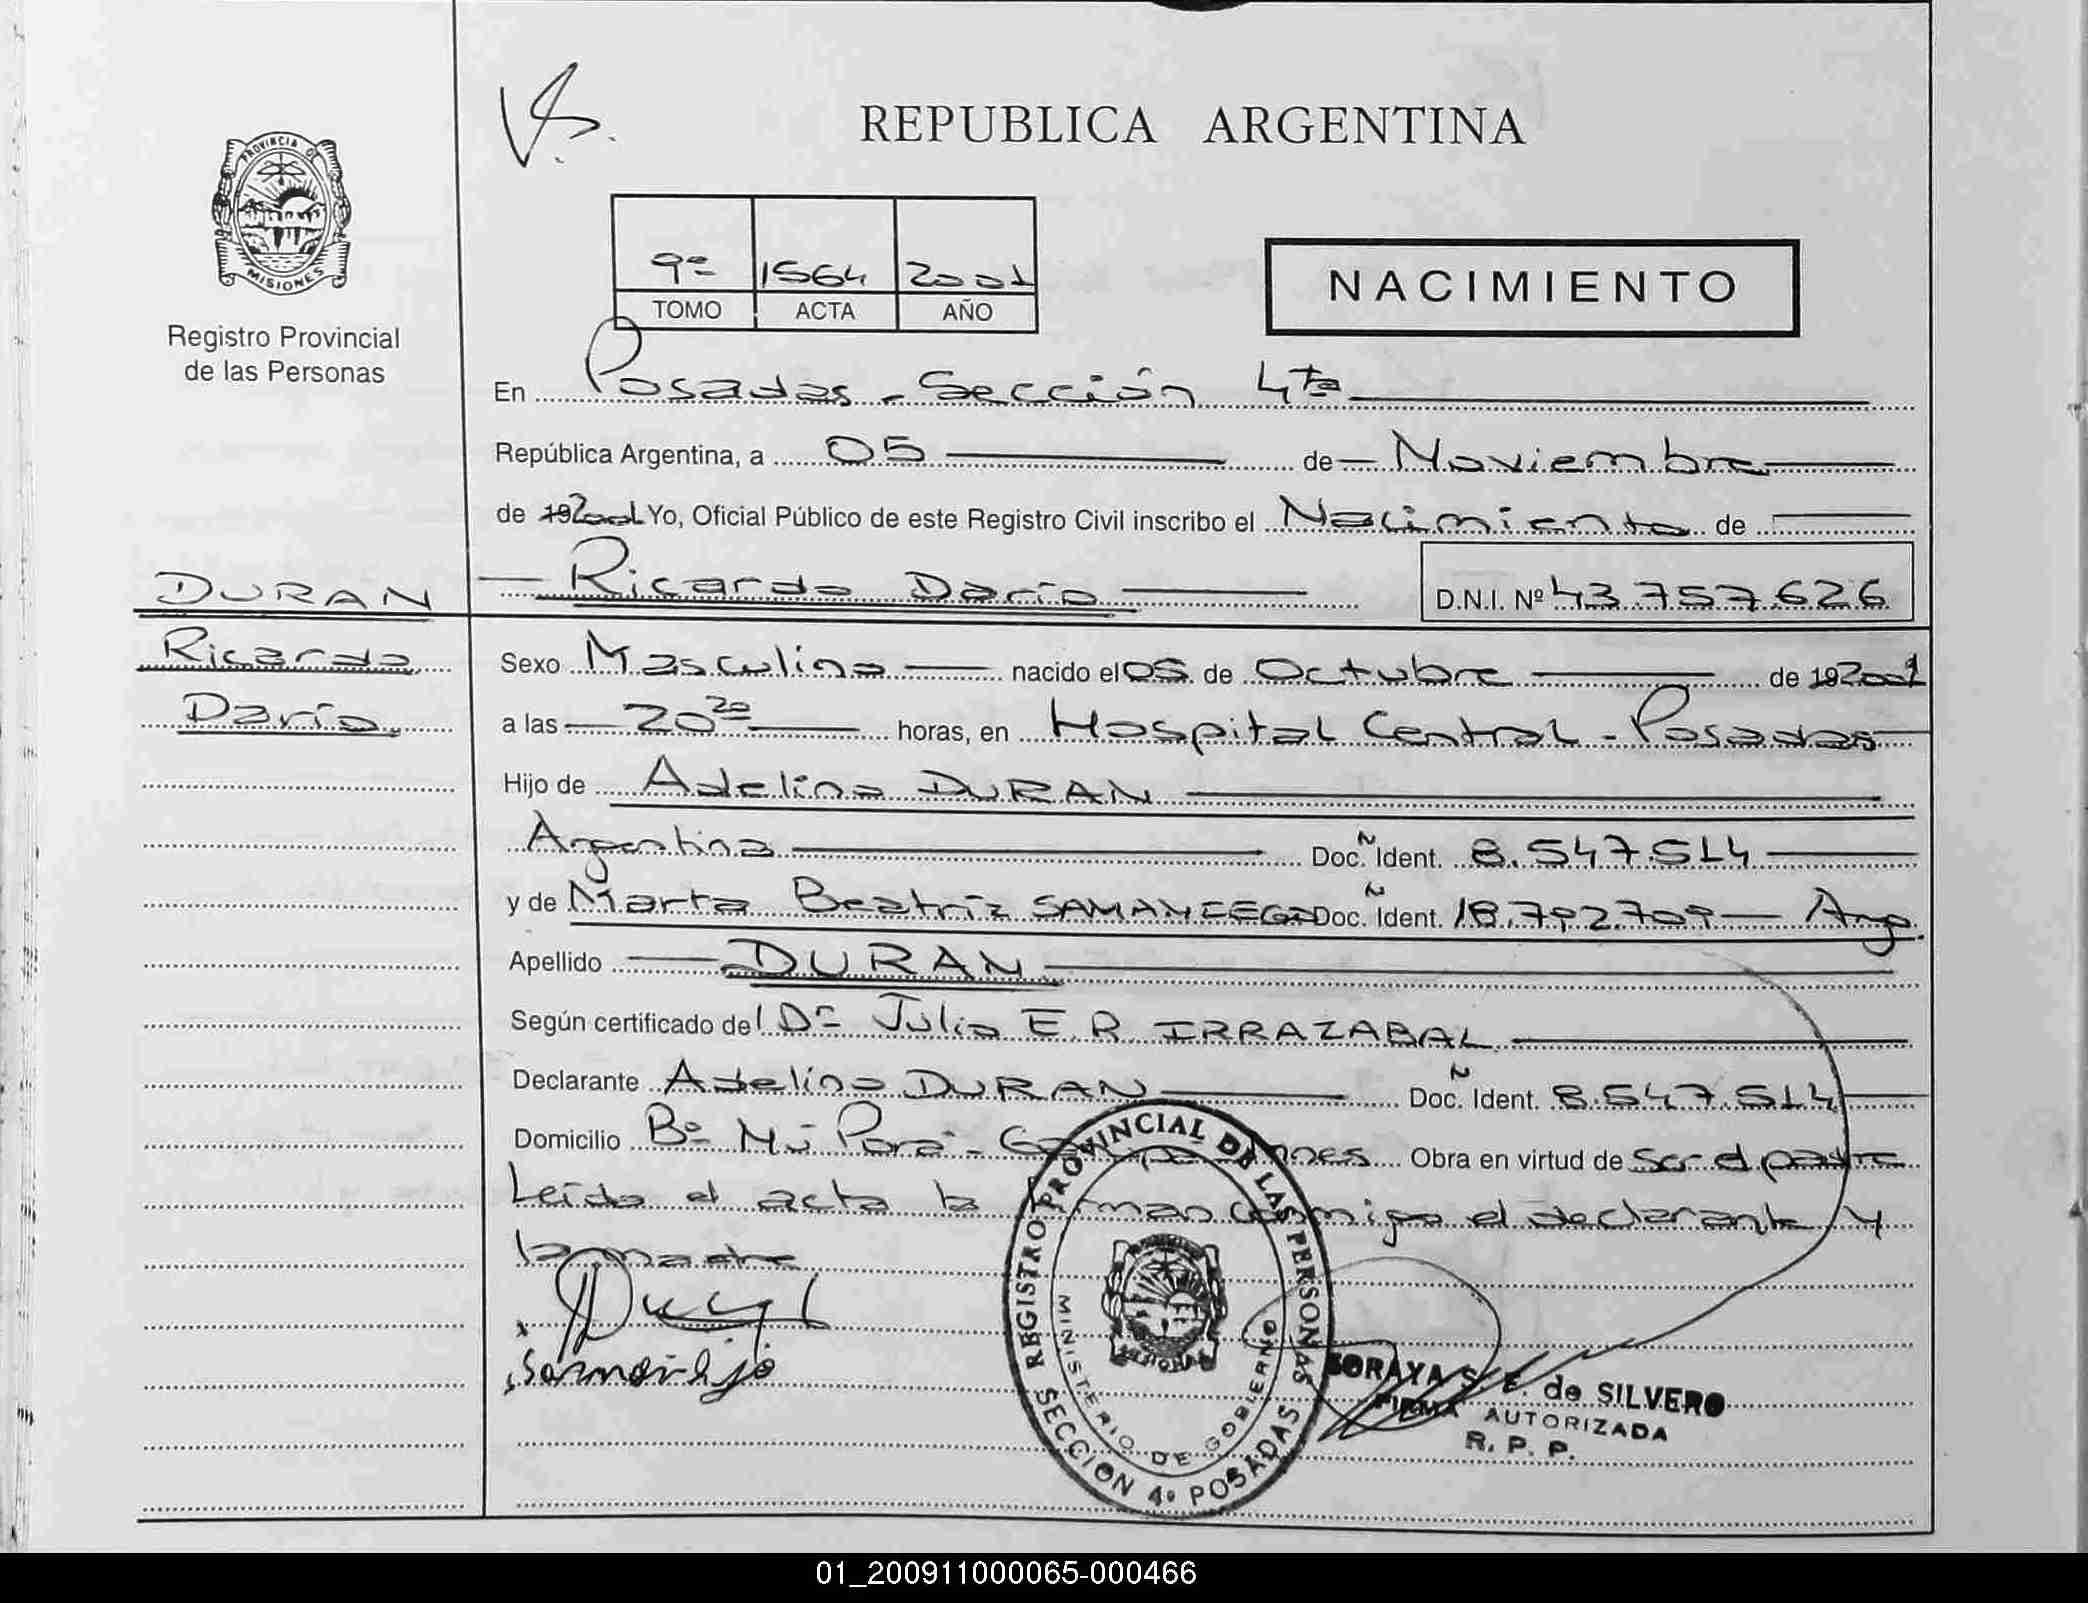 REPUBLICA ARGENTINA
PROVINCIA DE MISIONES
Registro Provincial
de las Personas
9º 1564 2001
TOMO ACTA AÑO
NACIMIENTO
En Posadas - Sección 4ta
República Argentina, a 05 de Noviembre
de 192001 Yo, Oficial Público de este Registro Civil inscribo el Nacimiento de
DURAN Ricardo Darío D.N.I. Nº 43.757.626
Ricardo
Darío
Sexo Masculino nacido el 05 de Octubre de 192001
a las 20 20 horas, en Hospital Central - Posadas
Hijo de Adelino DURAN
Argentino Doc. Ñ Ident. 8.547.514
y de Marta Beatríz Doc. Ñ Ident. 18.792.709 - Arg.
Apellido DURAN
Según certificado del Dr Julio E. R. IRRAZABAL
Declarante Adelino DURAN Doc. Ñ Ident. 8.547.514
Domicilio Bº Obra en virtud de Ser el padre
Leída el acta la firman conmigo el declarante y
la madre
REGISTRO PROVINCIAL DE LAS PERSONAS
MINISTERIO DE GOBIERNO
MISIONES
SECCION 4º POSADAS
SORAYA S. E. de SILVERO
FIRMA AUTORIZADA
R. P. P.
01_200911000065-000466